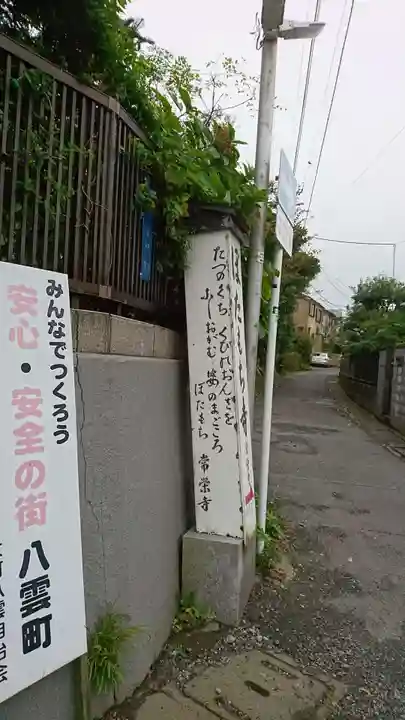 みんなでつくろう
安心・安全の街
八雲町
ぼたもち寺
たつのくち くびれおんぎを
ふしおがむ 婆のまごころ
ぼたもち 常栄寺